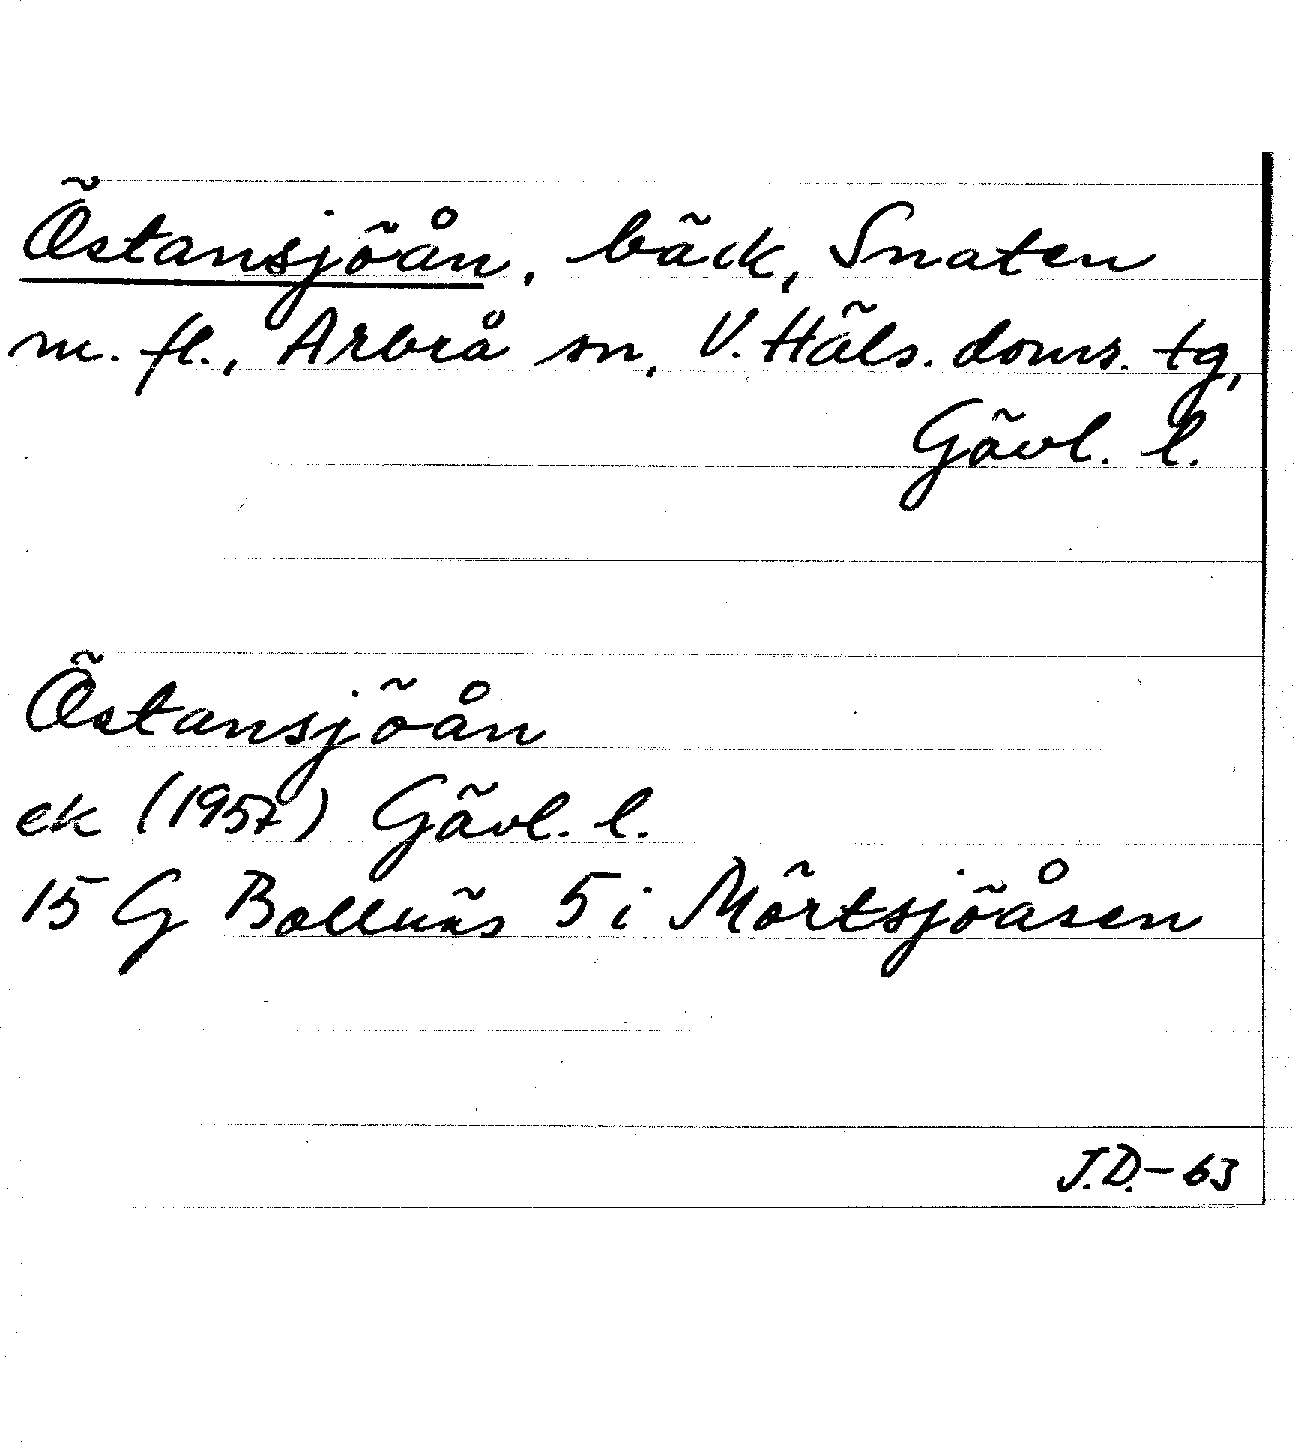 Östansjöån, bäck, Snaten
m. fl., Arbrå sn, V. Häls. doms. tg,
Gävl. l.
Östansjöån
ek (1957) Gävl. l.
15 G Bollnäs 5 i Mörtsjöåsen
J.D. - 63